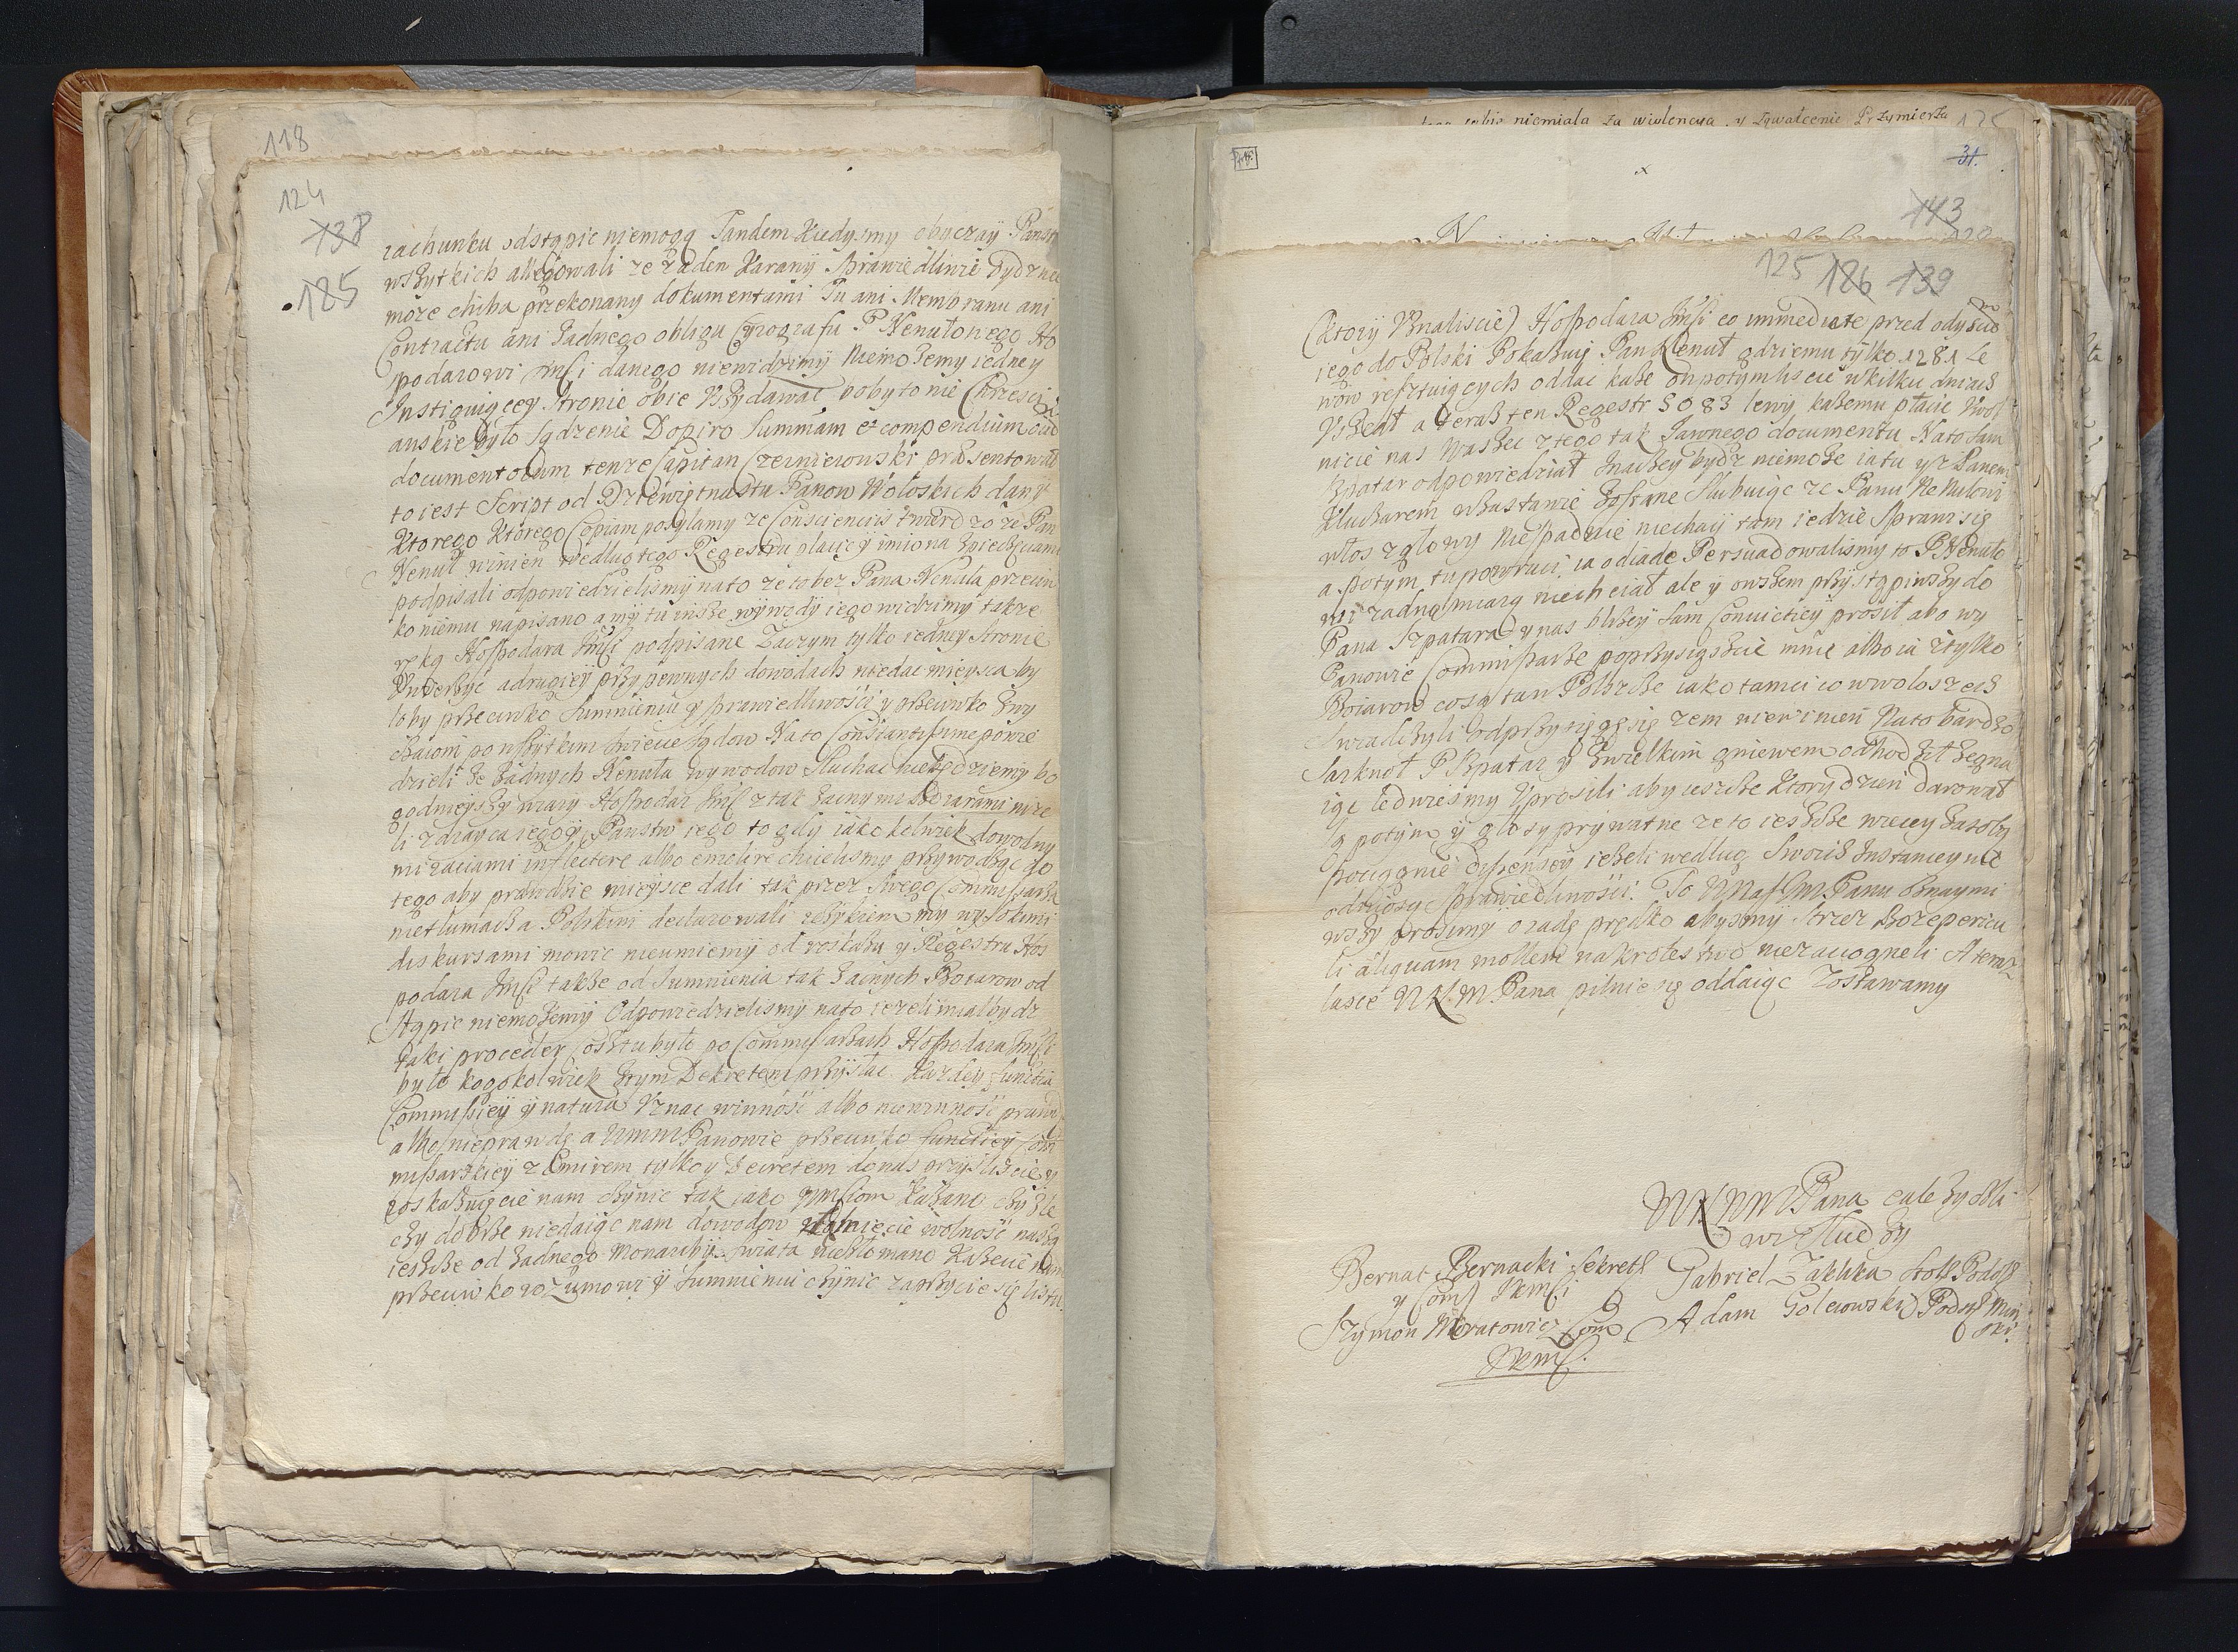 118
124
138
125
rachunku odstąpic niemogą Tandem Kiedysmy obyczay Panstw
wszytkich allegowali ze żaden Karany sprawiedliwie bydz nie
może chiba przekonany dokumentami Tu ani Membranu ani
Contractu ani żadnego obligu Cyrografu P Nenutowego Ho
spodarowi Jmsci danego niewidzimy Niemożemy iedney
Instiguiącey Stronie obie Uszy dawac boby to nie Chrzesci
anskie było sądzenie Dopiro Summam et compendium
documentorum tenze Capitan Czerniewski præsentował
to iest Script od Dziewiętnastu Panow Wołoskich dany
Ktorego Ktorego Copiam posyłamy ze Consciencis twierdzo ze Pan
Nenuł winien według tego Regestru płacic y imiona spieczęciami
podpisali odpowiedzielismy na to ze to bez Pana Nenuła przeciw
ko niemu napisano a my tu insze wywody iego widzimy takze
ręką Hospodara Jmsci podpisane Zaczym tylko iedney Stronie
Uwierzyc a drugiey przy pewnych dowodach niedac mieysca by
łoby przeciwko Sumnieniu y sprawiedliwości y przeciwko zwy
czaiom po wszytkim swiecie sądow Na to Constantissime powie
dzieli że żadnych Nenuła wywodow słuchac niebędziemy bo
godnieyszy wiary Hospodar Jmsc z tak zacnymi Boiarami nize
li zdrayca iego y Panstw iego to gdy iakokolwiek dowodny
mi raciami inflectere albo emolire chcielismy przywodząc do
tego aby prawdzie mieysce dali tak przez swego Commissarza
nietłumacza Polskimi declarowali ięzykiem my wysokimi
diskursami mowic nieumiemy od roskazu y Regestru Hos
podara Jmsci takze od Sumnienia tak zacnych Boiarow od
stąpic niemożemy Odpowiedzielismy na to iezeli miał bydz
taki proceder Cosztu było po Commissarzach Hospodara Jmsci
było kogokolwiek z tym Dekretem przysłac Każdey functia
Commissiey y natura Uznac winność albo niewinność prawdę
albo nieprawdę a WmmPanowie przeciwko functiey Com
missarskiey z Emirem tylko y Decretem do nas przysliscie y
roskazuiecie nam czynic tak iako Wmsciom Kazano czy źle
czy dobrze niedaiąc nam dowodow wolność naszą
ieszcze od żadnego Monarchy swiata niezłomano Każecie nam
przeciwko rozumowi y sumnieniu czynic zaprzycie się listu
sobie niemiala za wiolencya y zgwałcenie Przymierza
125
31.
143
125 126 139
(ktory Uznaliscie) Hospodara Jmsci co immediate przed odysciem
iego do Polski Pokazuie Pan Nenuł gdzie mu tylko 1281 Le
wow resztuiących oddac kaze on potym liscie w kilku dniach
Uszedł a teraz ten Regestr 5083 lewy każe mu płacic Uwol
nicie nas Waszec z tego tak Jawnego documentu Na to sam
Szpatar odpowiedział Inaczey bydz niemoże ia tu y z Panem
Kluczarem w zastawie zostane Slubuiąc ze Panu Nenułowi
włos z głowy niespadnie niechaij tam iedzie sprawi się
a potym tu powroci ia odiade Persuadowalismy to P Nenuło
wi żadną miarą niechciał ale y owszem przystąpiwszy do
Pana Szpatara y nas bliżey sam Convictiey prosił abo wy
Panowie Commissarze poprzysięzcie mnie albo ia z tylko
Boiarow co są tu w Polszcze iako tamci co w Wołoszech
swiadczyli odprzysięgę się zem niewinien Na to bardzo
sarknoł P Szpatar y z wielkim gniewem odhodził żegna
iąc ledwiesmy Uprosili aby ieszcze ktory dzien darował
są potym y głosy prywatne ze to ieszcze wiecey za sobą
pociągnie dissensiey ieżeli według Swoich Instanciey nie
odniosą sprawiedliwości. To WMsc Panu oznaymi
wszy prosimy o radę prędko abysmy strzez Boże pericu
li aliquam mollem na krolestwo niezaciągneli A teraz
łasce W K M Pana pilnie się oddaiąc zostawamy
W K W M Pana cale życzli
wi Słudzy
Bernat Bernacki Sekret
y Com JKmsci
Gabriel Zaklika Stol Podol
Szymon Moratowicz Com
JKmsc.
Adam Golciowski Podcz Min
ski